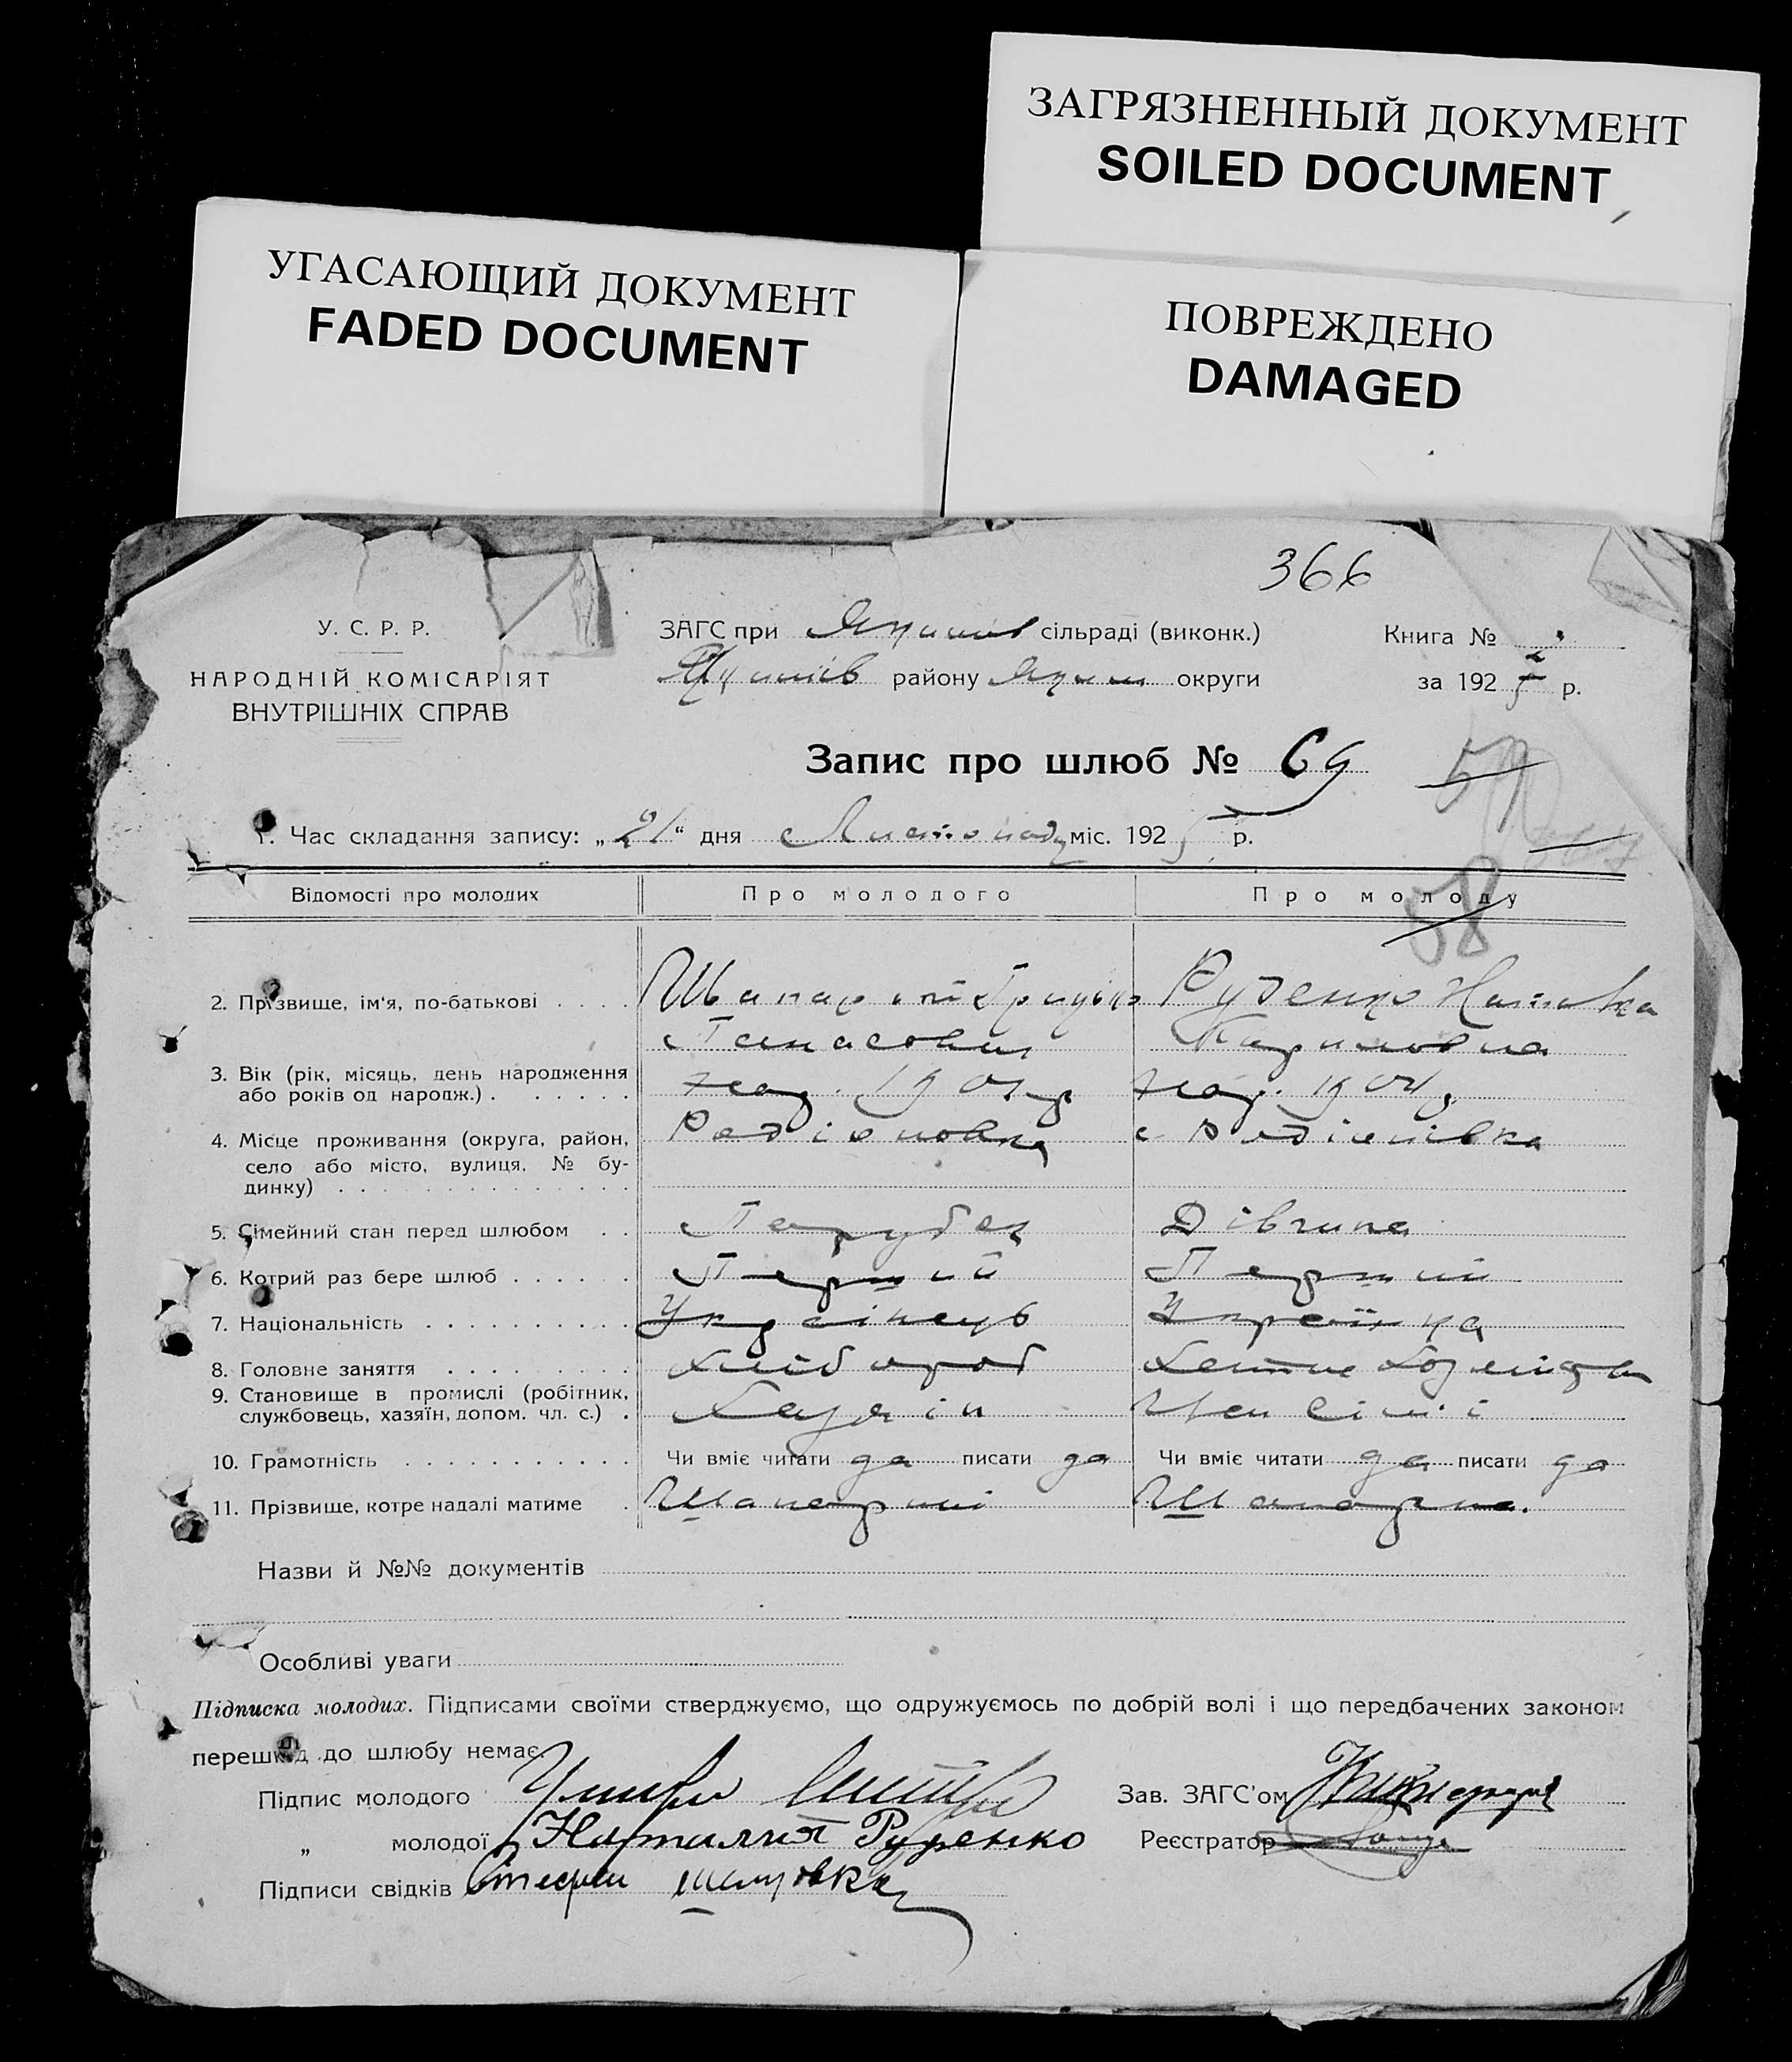 ЗАГРЯЗНЕННЫЙ ДОКУМЕНТ
SOILED DOCUMENT
УГАСАЮЩИЙ ДОКУМЕНТ
FADED DOCUMENT
ПОВРЕЖДЕНО
DAMAGED
366
У. С. Р. Р.
НАРОДНІЙ КОМІСАРІЯТ
ВНУТРІШНІХ СПРАВ
ЗАГС при сільраді (виконк.)
району округи
Книга №
за 1925 р.
Запис про шлюб № 69
1. Час складання запису: „21“ дня Листопаду міс. 1925 р.
58
Відомості про молодих Про молодого Про молоду
2. Прізвище, ім'я, по-батькові Руденко Наталка
3. Вік (рік, місяць, день народження або років од народж.) нар. 1901 р нар. 1904 р
4. Місце проживання (округа, район, село або місто, вулиця, № будинку) Радіоновка с Радіонівка
5. Сімейний стан перед шлюбом Парубок Дівчина
6. Котрий раз бере шлюб Перший Перший
7. Національність Українець Українка
8. Головне заняття Хлібороб
9. Становище в промислі (робітник, службовець, хазяїн, допом. чл. с.) Хазяїн Член сім'ї
10. Грамотність Чи вміє читати да писати да Чи вміє читати да писати да
11. Прізвище, котре надалі матиме
Назви й №№ документів
Особливі уваги
Підписка молодих. Підписами своїми стверджуємо, що одружуємось по добрій волі і що передбачених законом
перешкод до шлюбу немає.
Підпис молодого Зав. ЗАГС'ом
„ молодої Наталия Руденко Реєстратор
Підписи свідків